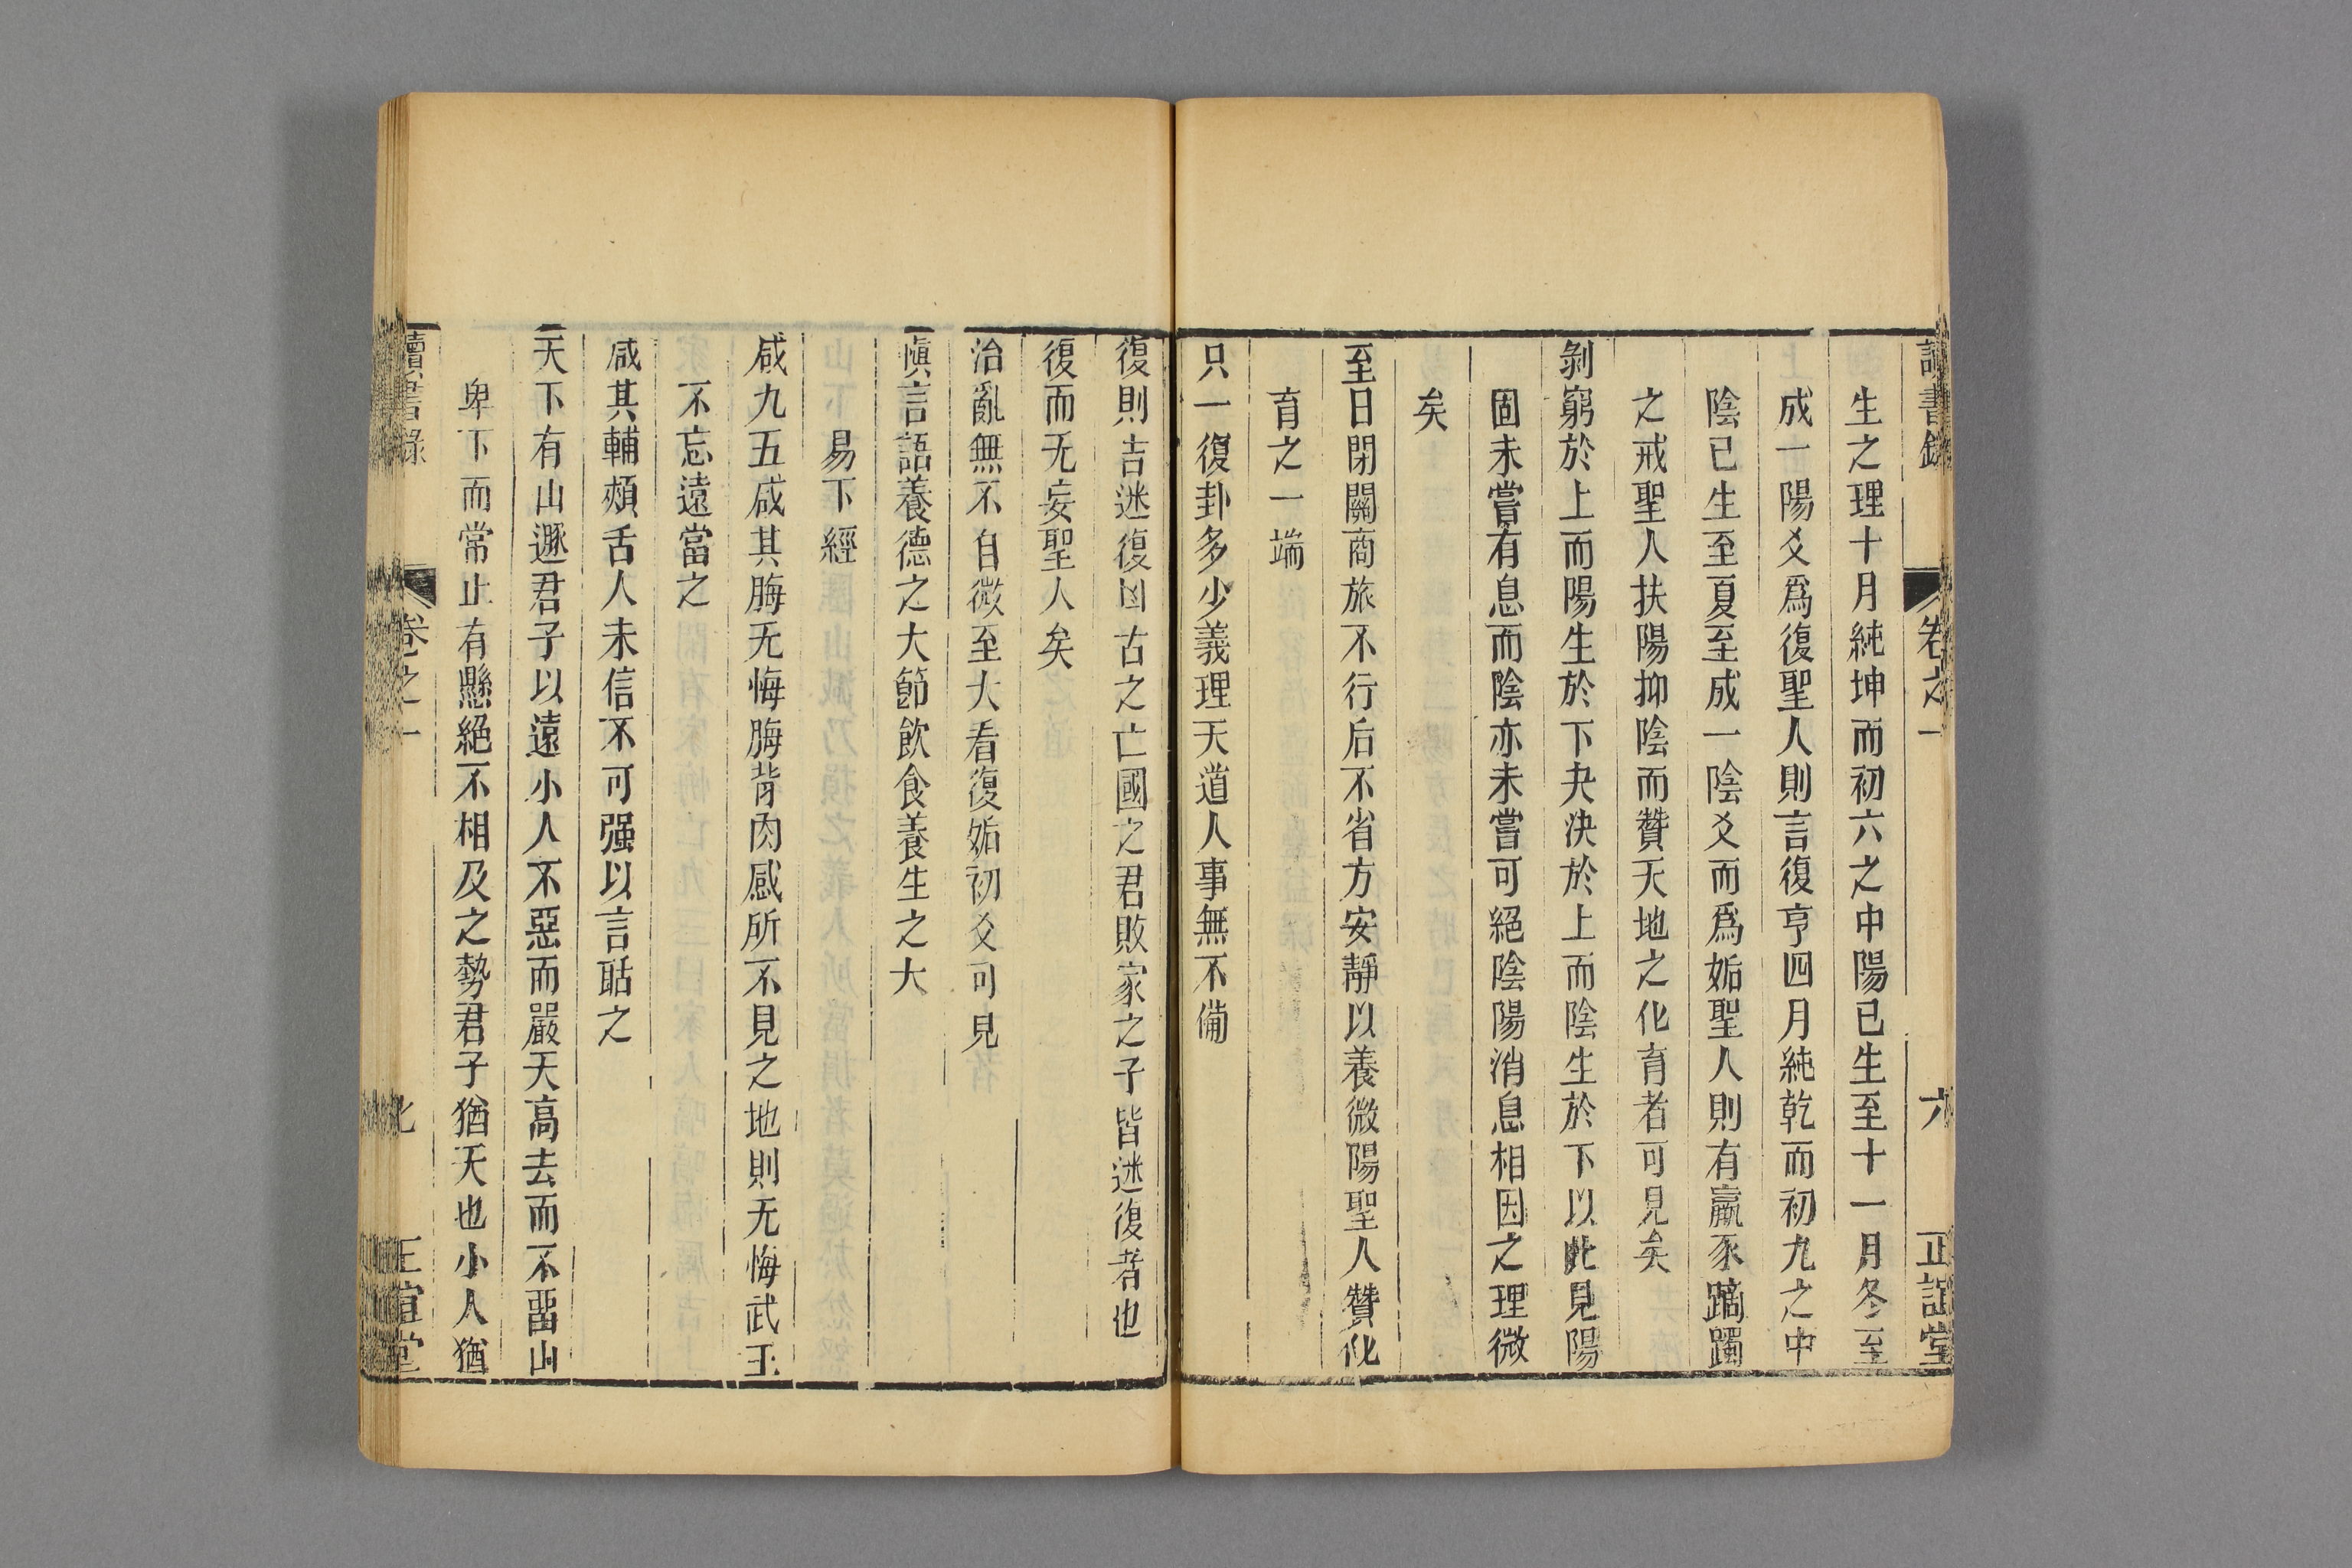 讀書錄 卷之一 六 正誼堂
生之理十月純坤而初六之中陽已生至十一月冬至
成一陽爻爲復聖人則言復亨四月純乾而初九之中
陰已生至夏至成一陰爻而爲姤聖人則有羸豕蹢躅
之戒聖人扶陽抑陰而贊天地之化育者可見矣
剝窮於上而陽生於下夬決於上而陰生於下以此見陽
固未嘗有息而陰亦未嘗可絕陰陽消息相因之理微
矣
至日閉關商旅不行后不省方安靜以養微陽聖人贊化
育之一端
只一復卦多少義理天道人事無不備
復則吉迷復凶古之亡國之君敗家之子皆迷復者也
復而无妄聖人矣
治亂無不自微至大看復姤初爻可見
愼言語養德之大節飲食養生之大
易下經
咸九五咸其脢无悔脢背肉感所不見之地則无悔武王
不忘遠當之
咸其輔頰舌人未信不可强以言聒之
天下有山遯君子以遠小人不惡而嚴天高去而不畱山
卑下而常止有懸絕不相及之勢君子猶天也小人猶
讀書錄 卷之一 正誼堂